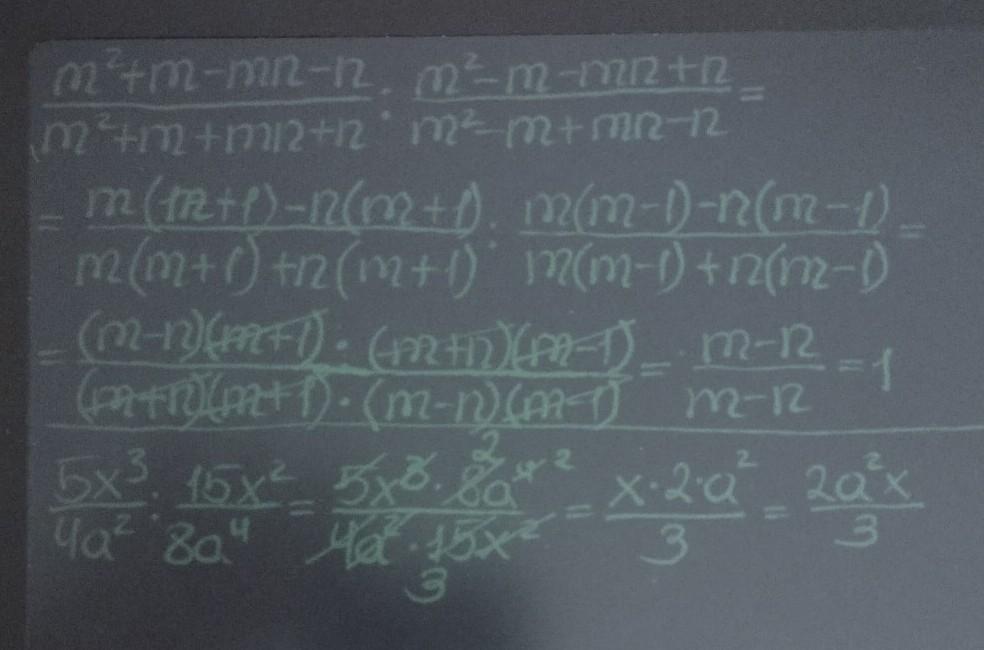 (m²+m-mn-n)/(m²+m+mn+n) : (m²-m-mn+n)/(m²-m+mn-n) =
= (m(m+1)-n(m+1))/(m(m+1)+n(m+1)) : (m(m-1)-n(m-1))/(m(m-1)+n(m-1)) =
= ((m-n)(m+1)·(m+n)(m-1))/((m+n)(m+1)·(m-n)(m-1)) = (m-n)/(m-n) = 1
5x³/4a² : 15x²/8a⁴ = (5x³·8a⁴ 2 2)/(4a²·15x² 3) = (x·2·a²)/3 = 2a²x/3